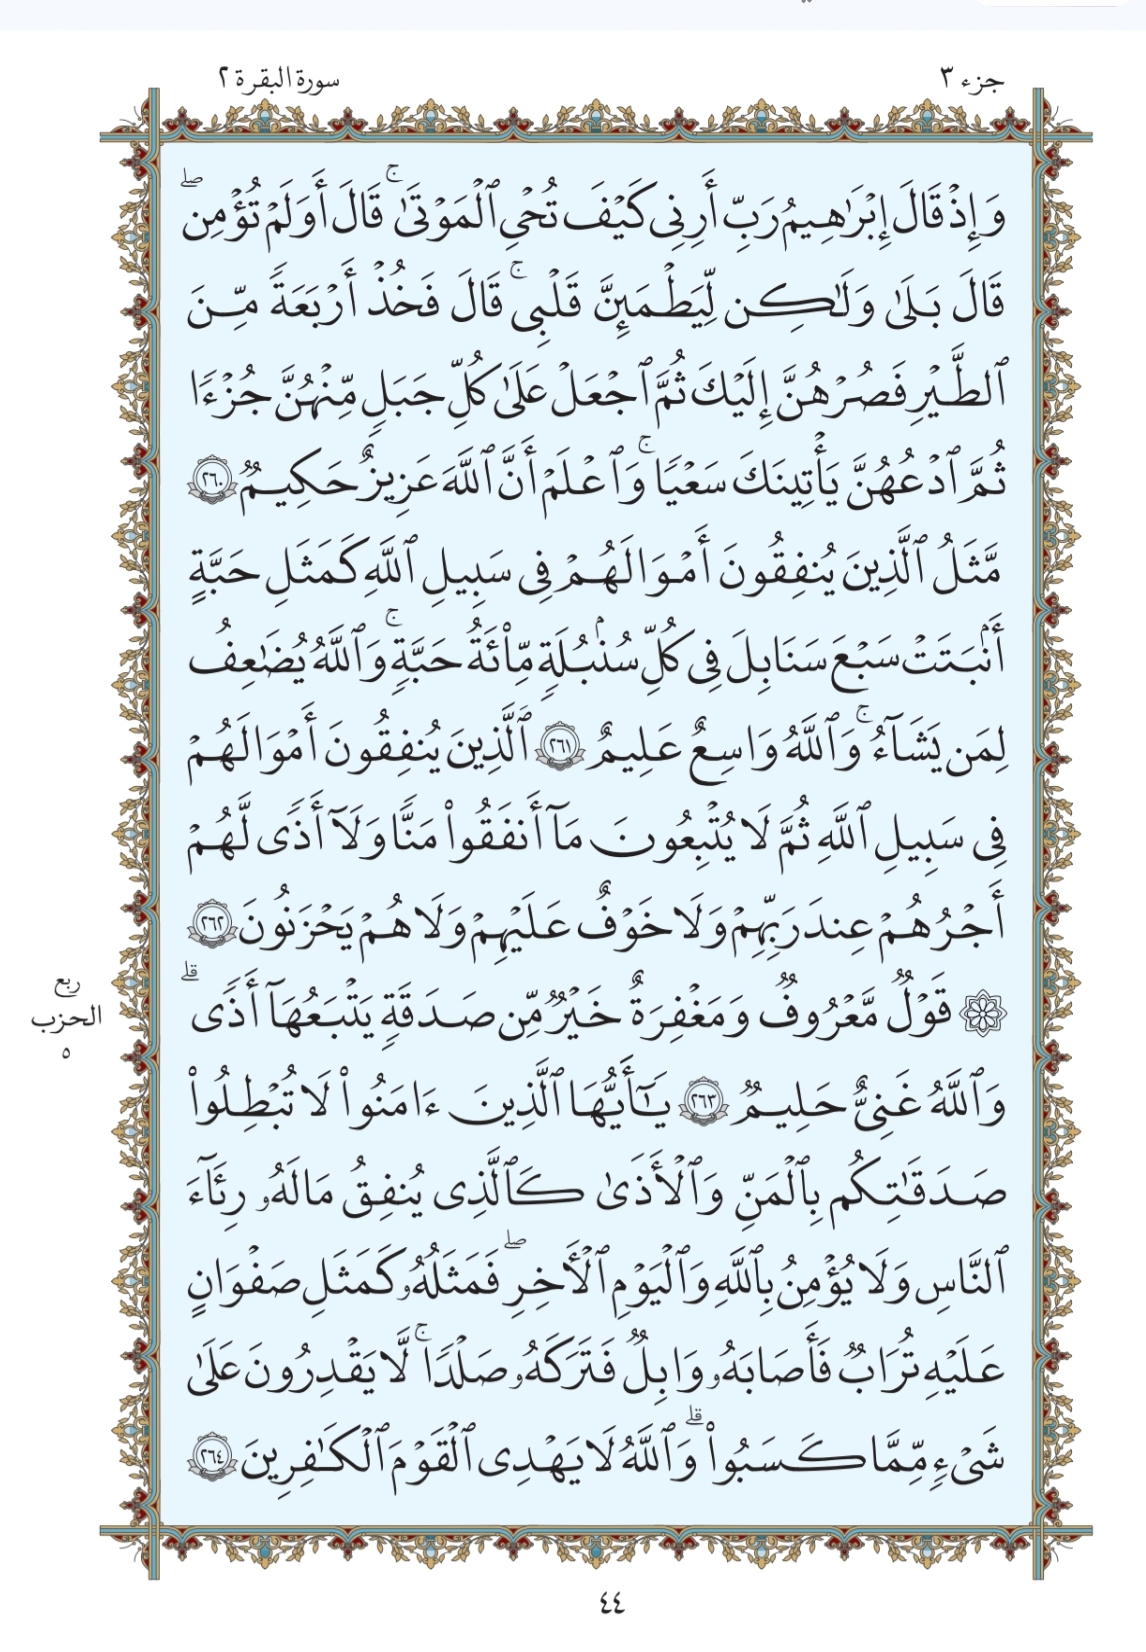 جزء ٣
سورة البقرة ٢
وَإِذْ قَالَ إِبْرَٰهِـۧمُ رَبِّ أَرِنِى كَيْفَ تُحْىِ ٱلْمَوْتَىٰ ۚ قَالَ أَوَلَمْ تُؤْمِن ۖ
قَالَ بَلَىٰ وَلَٰكِن لِّيَطْمَئِنَّ قَلْبِى ۚ قَالَ فَخُذْ أَرْبَعَةً مِّنَ
ٱلطَّيْرِ فَصُرْهُنَّ إِلَيْكَ ثُمَّ ٱجْعَلْ عَلَىٰ كُلِّ جَبَلٍ مِّنْهُنَّ جُزْءًا
ثُمَّ ٱدْعُهُنَّ يَأْتِينَكَ سَعْيًا ۚ وَٱعْلَمْ أَنَّ ٱللَّهَ عَزِيزٌ حَكِيمٌ ٢٦٠
مَّثَلُ ٱلَّذِينَ يُنفِقُونَ أَمْوَالَهُمْ فِى سَبِيلِ ٱللَّهِ كَمَثَلِ حَبَّةٍ
أَنۢبَتَتْ سَبْعَ سَنَابِلَ فِى كُلِّ سُنۢبُلَةٍ مِّا۟ئَةُ حَبَّةٍ ۚ وَٱللَّهُ يُضَٰعِفُ
لِمَن يَشَآءُ ۚ وَٱللَّهُ وَاسِعٌ عَلِيمٌ ٢٦١ ٱلَّذِينَ يُنفِقُونَ أَمْوَالَهُمْ
فِى سَبِيلِ ٱللَّهِ ثُمَّ لَا يُتْبِعُونَ مَآ أَنفَقُوا۟ مَنًّا وَلَآ أَذًى لَّهُمْ
أَجْرُهُمْ عِندَ رَبِّهِمْ وَلَا خَوْفٌ عَلَيْهِمْ وَلَا هُمْ يَحْزَنُونَ ٢٦٢
ربع
الحزب
٥
۞ قَوْلٌ مَّعْرُوفٌ وَمَغْفِرَةٌ خَيْرٌ مِّن صَدَقَةٍ يَتْبَعُهَآ أَذًى ۗ
وَٱللَّهُ غَنِىٌّ حَلِيمٌ ٢٦٣ يَٰٓأَيُّهَا ٱلَّذِينَ ءَامَنُوا۟ لَا تُبْطِلُوا۟
صَدَقَٰتِكُم بِٱلْمَنِّ وَٱلْأَذَىٰ كَٱلَّذِى يُنفِقُ مَالَهُۥ رِئَآءَ
ٱلنَّاسِ وَلَا يُؤْمِنُ بِٱللَّهِ وَٱلْيَوْمِ ٱلْأَخِرِ ۖ فَمَثَلُهُۥ كَمَثَلِ صَفْوَانٍ
عَلَيْهِ تُرَابٌ فَأَصَابَهُۥ وَابِلٌ فَتَرَكَهُۥ صَلْدًا ۚ لَّا يَقْدِرُونَ عَلَىٰ
شَىْءٍ مِّمَّا كَسَبُوا۟ ۗ وَٱللَّهُ لَا يَهْدِى ٱلْقَوْمَ ٱلْكَٰفِرِينَ ٢٦٤
٤٤